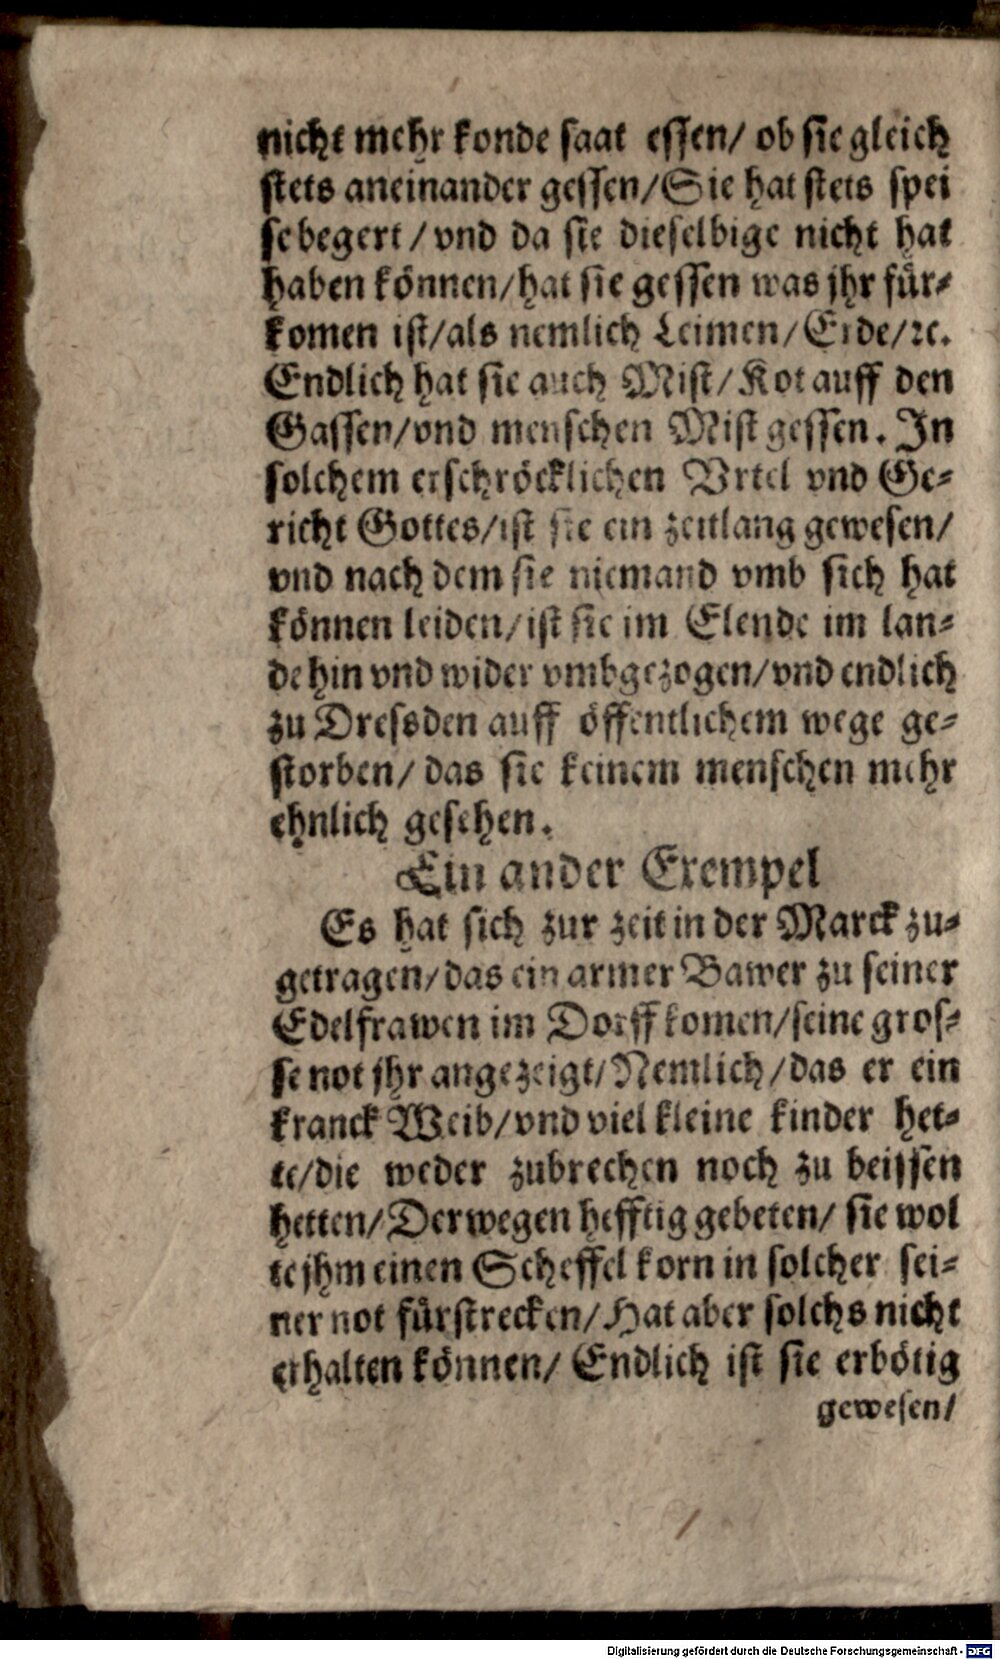 nicht mehr konde saat essen/ ob sie gleich
stets aneinander gessen/Sie hat stets spei
se begert/vnd da sie dieselbige nicht hat
haben können/hat sie gessen was jhr für⸗
komen ist/als nemlich Leimen/Erde/ꝛc.
Endlich hat sie auch Mist/Kot auff den
Gassen/vnd menschen Mist gessen. In
solchem erschröcklichen Vrtel vnd Ge⸗
richt Gottes/ist sie ein zeitlang gewesen/
vnd nach dem sie niemand vmb sich hat
können leiden/ist sie im Elende im lan⸗
de hin vnd wider vmbgezogen/vnd endlich
zu Dresden auff öffentlichem wege ge⸗
storben/ das sie keinem menschen mehr
ehnlich gesehen.
Ein ander Exempel
Es hat sich zur zeit in der Marck zu⸗
getragen/das ein armer Bawer zu seiner
Edelfrawen im Dorff komen/seine gros⸗
se not jhr angezeigt/Nemlich/das er ein
kranck Weib/vnd viel kleine kinder het⸗
te/die weder zubrechen noch zu beissen
hetten/Derwegen hefftig gebeten/ sie wol
te jhm einen Scheffel korn in solcher sei⸗
ner not fürstrecken/Hat aber solchs nicht
erhalten können/ Endlich ist sie erbötig
gewesen/
Digitalisierung gefördert durch die Deutsche Forschungsgemeinschaft - DFG